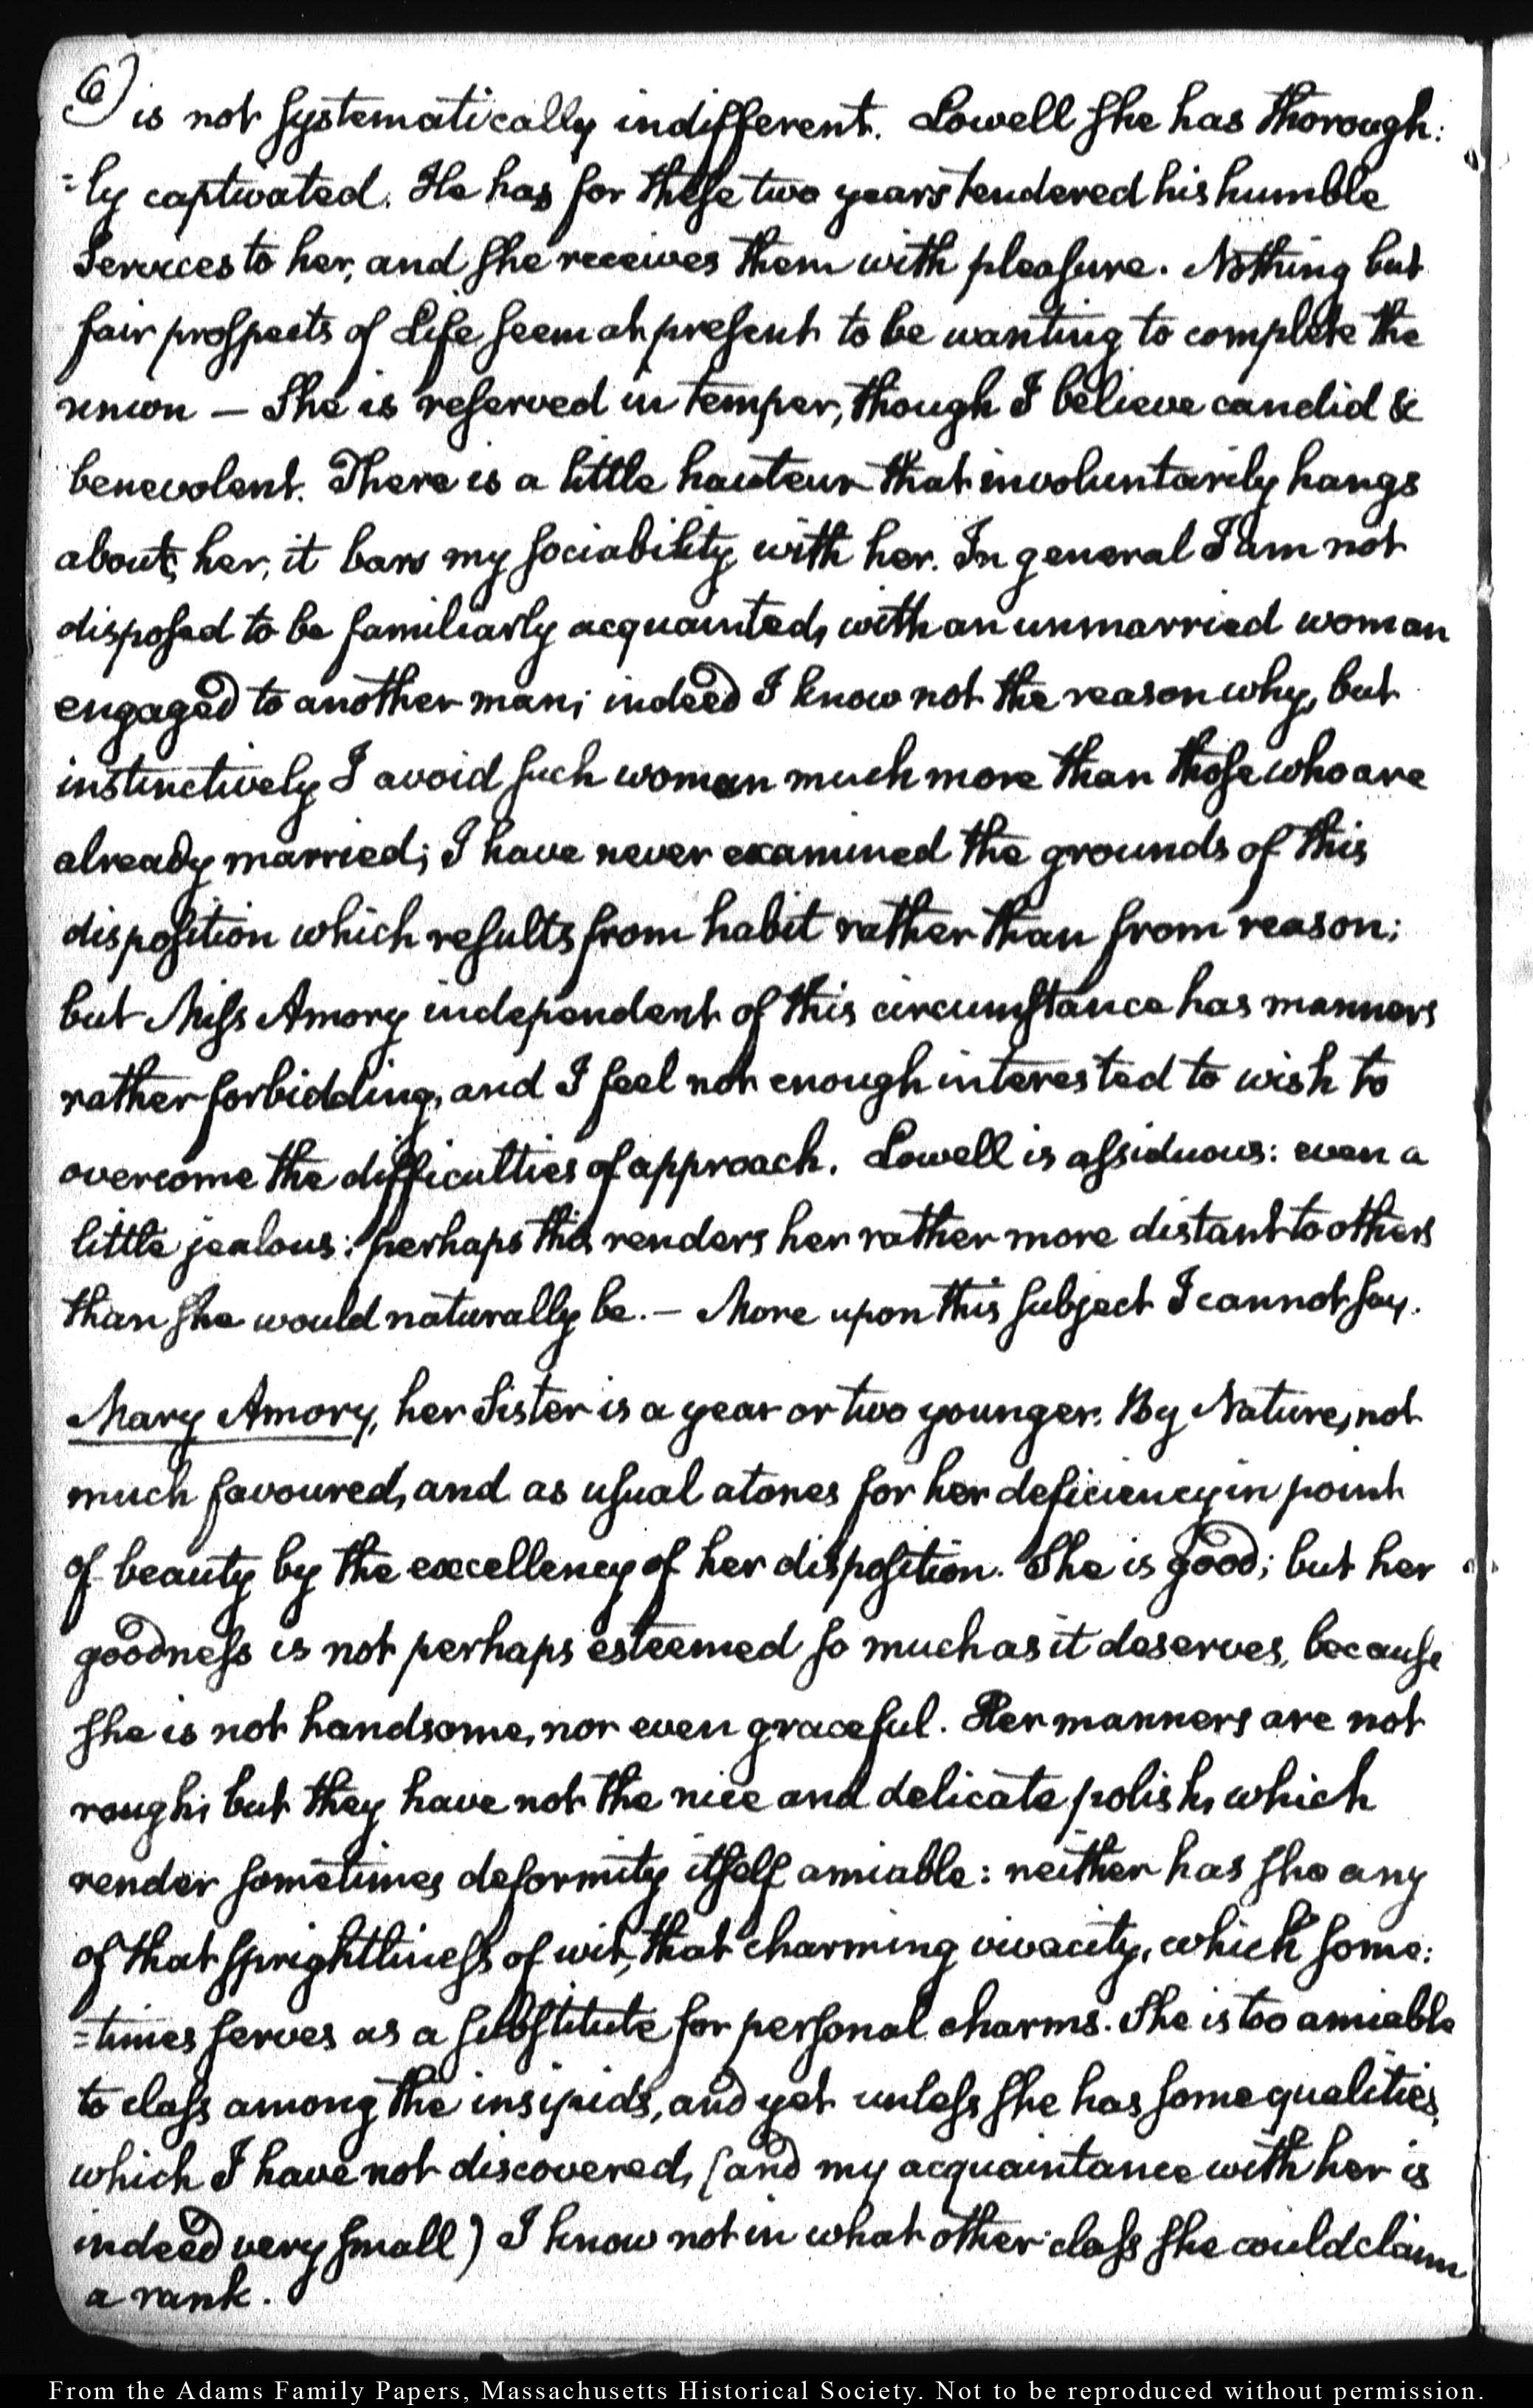 6) is not systematically indifferent. Lowell she has thorough:
=ly captivated. He has for these two years tendered his humble
services to her, and she receives them with pleasure. Nothing but
fair prospects of Life seem at present to be wanting to complete the
union — She is reserved in temper, though I believe candid &
benevolent. There is a little hauteur that involuntarily hangs
about, her, it bars my sociability with her. In general I am not
disposed to be familiarly acquainted, with an unmarried woman
engaged to another man; indeed I know not the reason why, but
instinctively I avoid such woman much more than those who are
already married; I have never examined the grounds of this
disposition which results from habit rather than from reason;
but Miss Amory independent of this circumstance has manners
rather forbidding, and I feel not enough interested to wish to
overcome the difficulties of approach. Lowell is assiduous: even a
little jealous: perhaps this renders her rather more distant to others
than she would naturally be. — More upon this subject I cannot say.
Mary Amory, her Sister is a year or two younger. By Nature, not
much favoured, and as usual atones for her deficiency in point
of beauty by the excellency of her disposition. She is good; but her
goodness is not perhaps esteemed so much as it deserves, because
she is not handsome, nor even graceful. Her manners are not
rough; but they have not the nice and delicate polish, which
render sometimes deformity itself amiable: neither has she any
of that sprightliness of wit, that charming vivacity, which some:
=times serves as a substitute for personal charms. She is too amiable
to class among the insipids, and yet unless she has some qualities,
which I have not discovered, (and my acquaintance with her is
indeed very small) I know not in what other class she could claim
a rank.
From the Adams Family Papers, Massachusetts Historical Society. Not to be reproduced without permission.